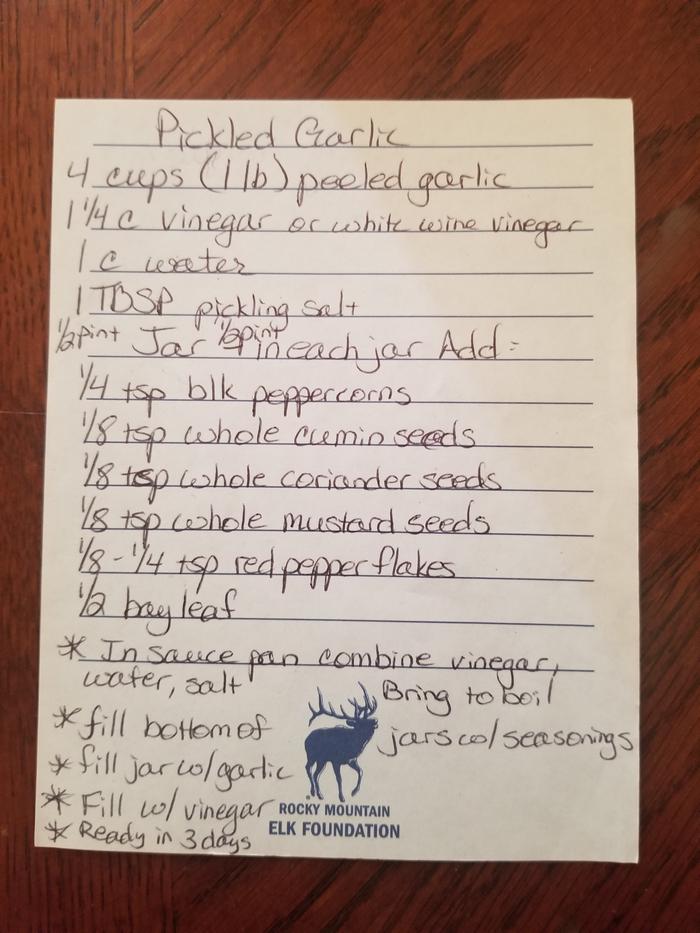 Pickled Garlic
4 cups (1 lb) peeled garlic
1 1/4 c vinegar or white wine vinegar
1 c water
1 TBSP pickling salt
1/2 pint Jar 1/2 pint in each jar Add:
1/4 tsp blk peppercorns
1/8 tsp whole cumin seeds
1/8 tsp whole coriander seeds
1/8 tsp whole mustard seeds
1/8 - 1/4 tsp red pepper flakes
1/2 bay leaf
* In sauce pan combine vinegar,
water, salt Bring to boil
* fill bottom of jars w/ seasonings
* fill jar w/ garlic
* Fill w/ vinegar
* Ready in 3 days
ROCKY MOUNTAIN
ELK FOUNDATION